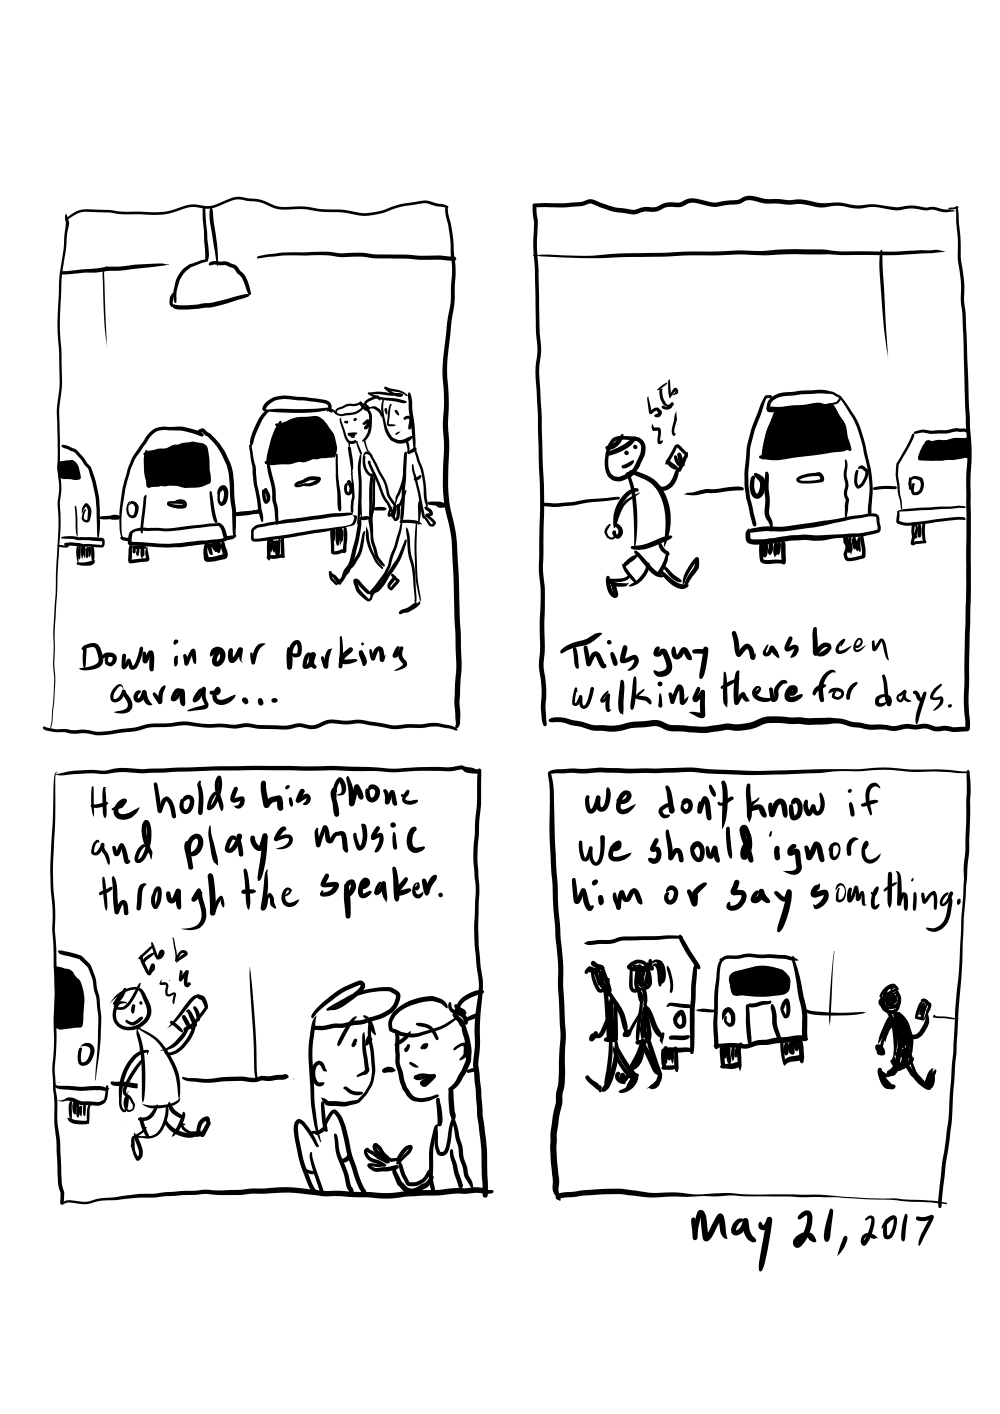 Down in our parking
garage...
This guy has been
walking there for days.
He holds his phone
and plays music
through the speaker.
We don't know if
we should ignore
him or say something.
May 21, 2017